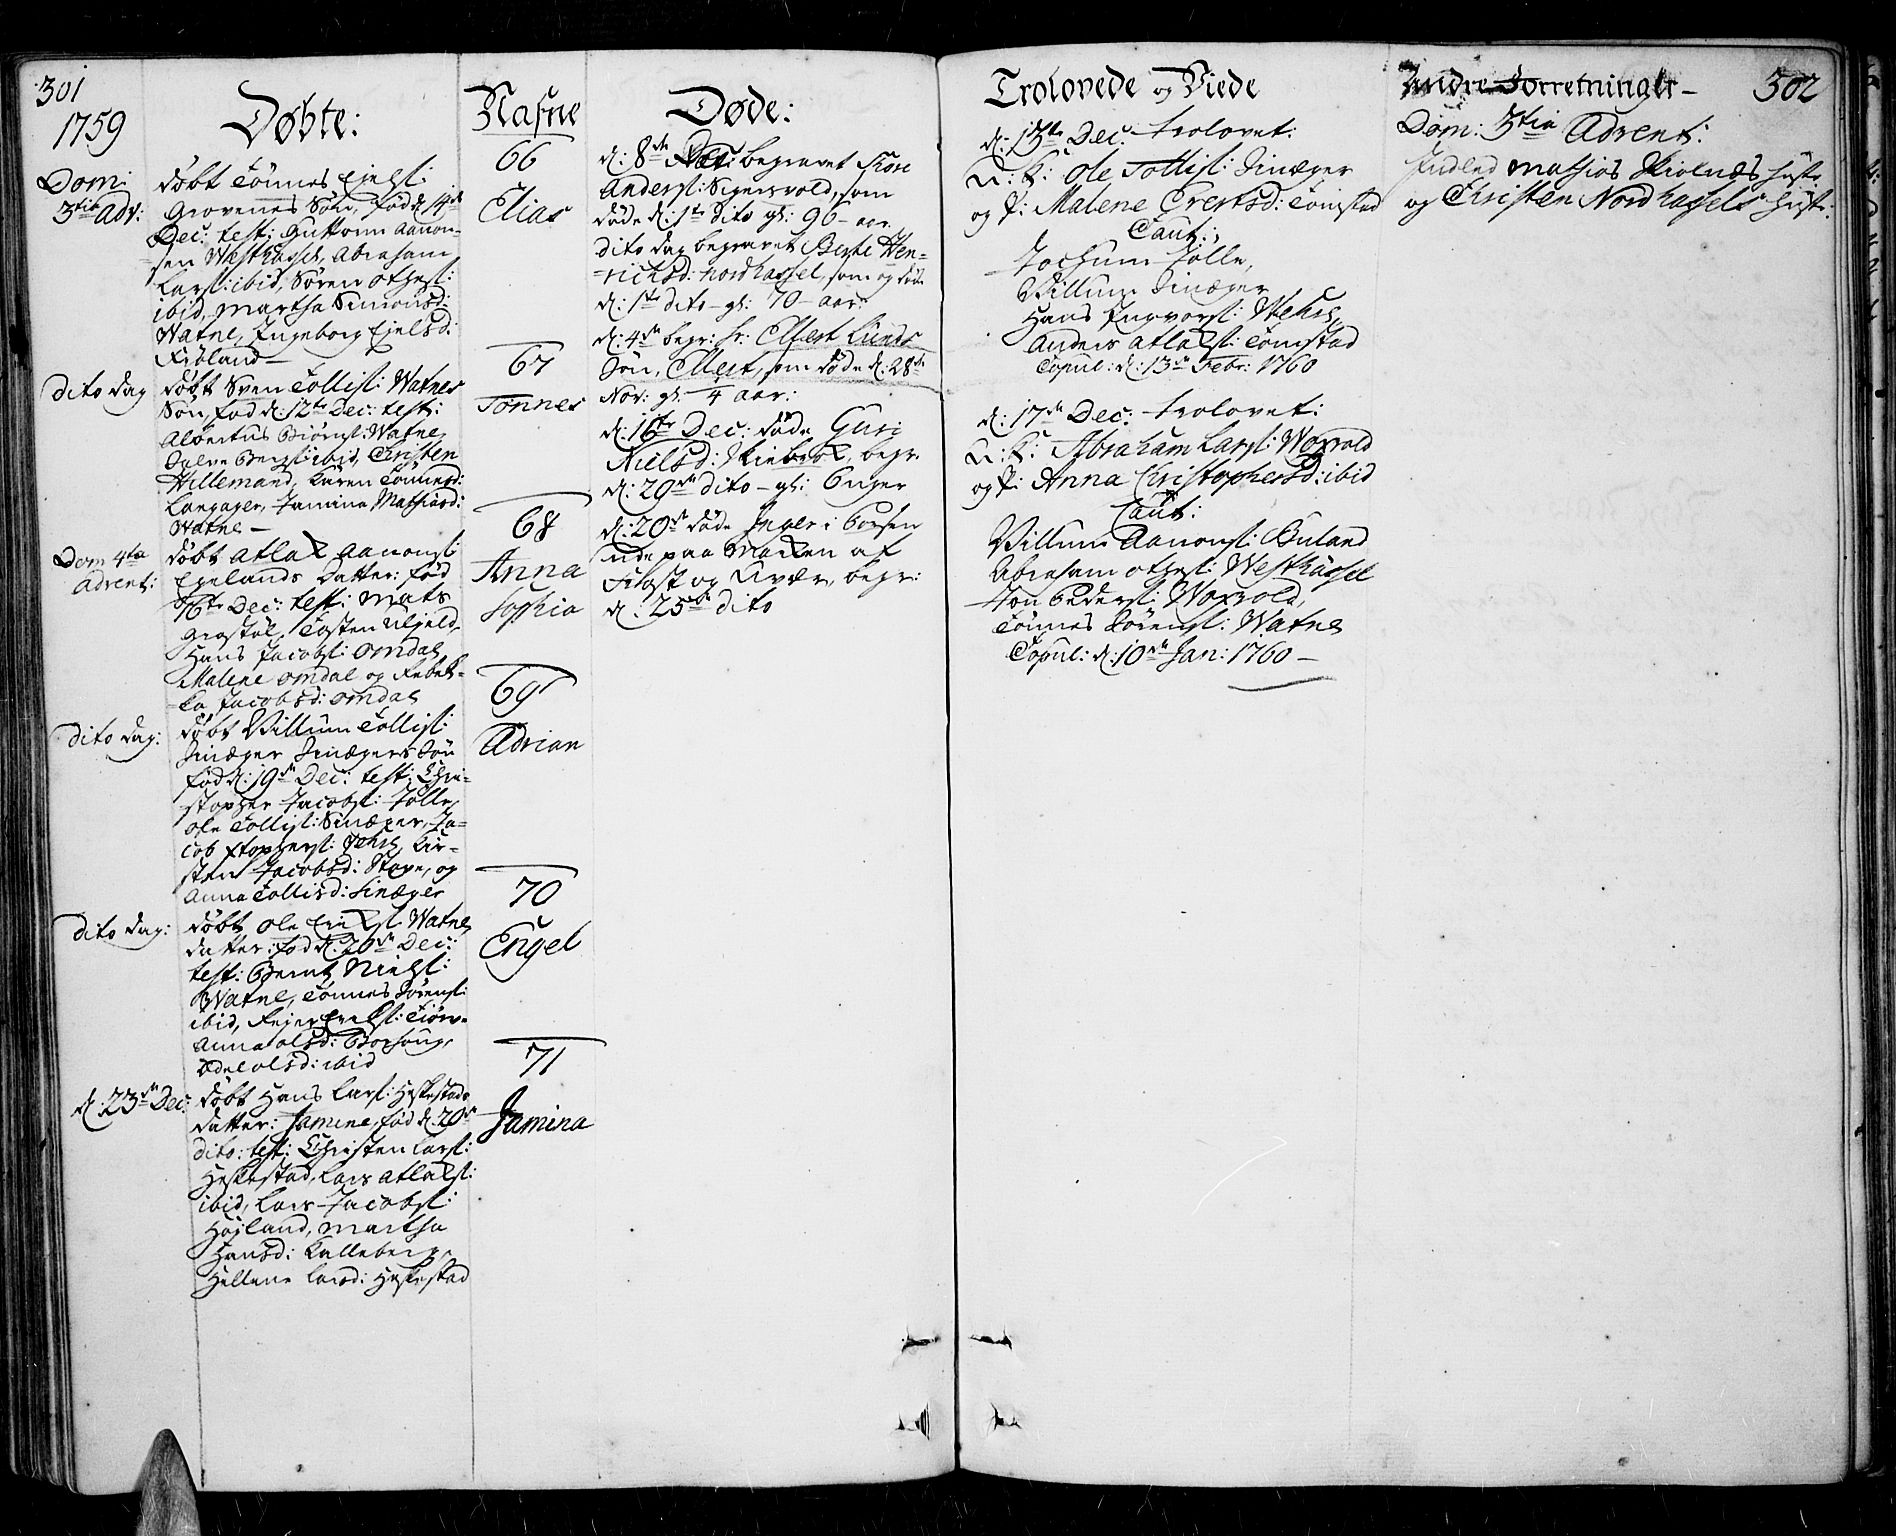 301
1759
Døbte:
Dom:
3tia Adv:
døbt Tønnes Ejels:
Grovenes Søn, fød d: 14de
Dec: test: Guttorm Aanon-
sen Westhassel, Abraham
Lars: ibid, Søren Otges:
ibid, Martha Simonsd:
Watne, Ingeborg Ejelsd:
Frøland
dito dag
døbt Sven Tollis: Watnes
Søn, fød d: 12te Dec: test:
Albertus Biørns: Watne,
ibid, Christen
Hillemand, Karen Tønnesd:
Langager, Jamina Mathiasd:
Watne
Dom 4ta
Advent:
døbt Atlak Aanons:
Egelands Datter: fød
16te Dec: test: Mats
Grastøl, Tosten
Hans Jacobs: Omdal,
Malene Omdal og Rebek-
ka Jacobsd: Omdal
dito dag:
døbt Villum Tollis:
Sinæger Sinægers Søn
fød d: 19de Dec: test: Chri-
stopher Jacobs: Jølle,
Ole Tollis: Sinæger, Ja-
cob Xtophers: Kir-
sten Jacobsd: Stave, og
Anna Tollisd: Sinæger
dito dag:
døbt Ole Eriks: Watnes
datter: fød d: 20de Dec:
test: Bernt Niels:
Watne, Tønnes Sørens:
ibid, Rejer Eriks: Tiørv-
Anna Olsd: Borhoug,
Adel Olsd: ibid
d: 23de Dec:
døbt Hans Lars: Heskestads
datter: Jamine, fød d: 20de
dito: test: Christen Lars:
Heskestad, Lars Atlaks:
ibid, Lars Jacobs:
Højland, Martha
Hansd: Kalleberg,
Hellene Larsd: Heskestad
Nafne
66
Elias
67
Tønnes
68
Anna
Sophia
69
Adrian
70
Engel
71
Jamina
Døde:
d: 8de begravet Kari
Anders: Sigersvold, som
døde d: 1te dito gl: 96 aar
dito dag begravet Berte Hen-
richsd: Nordhassel, som og døde
d: 1te dito gl: 70 aar:
d: 4de begr: hr: Elfert Lunds
Søn, Ellert, som døde d: 28de
Nov: gl: 4 aar:
d: 16te Dec: døde Guri
Nielsd: Skiebrok, begr.
d: 29de dito gl: 6 uger
d: 20de døde Inger i
ude paa Marken af
Frost og Kulde, begr:
d: 25de dito
Trolovede og Viede
d: 13te Dec: trolovet:
U: K: Ole Tollis: Sinæger
og P: Malene Gertsd: Tomstad
Caut:
Jochum Jølle,
Villum Sinæger
Hans Ingvors:
Anders Atlaks: Tomstad
Copul: d: 13de Febr: 1760
d: 17de Dec: trolovet:
U: K: Abraham Lars: Woxvold
og P: Anna Christophersd: ibid
Caut:
Villum Aanons: Buland
Abraham Otges: Westhassel
Jon Peders: Woxvold,
Tønnes Sørens: Watne
Copul: d: 10de Jan: 1760
Andre Forretninger
302
Dom: 3tia Advent:
Indled Mathias Skiolnæs hustr
og Christen Nordhassels hustr: